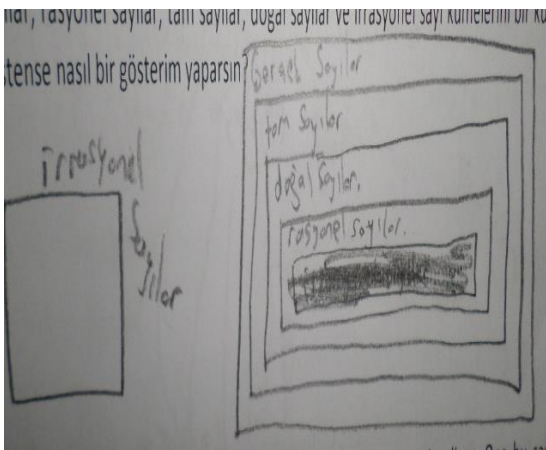 rasyonel sayılar, tam sayılar, doğal sayılar ve irrasyonel sayı kümelerini bir
stense nasıl bir gösterim yaparsın?
gerçel Sayılar
tam Sayılar
doğal Sayılar.
rasyonel sayılar.
irrasyonel
Sayılar